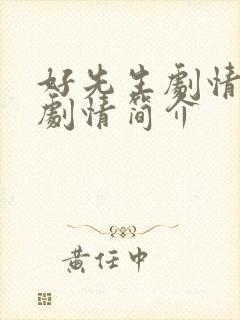 好先生劇情
劇情简介
黄任中